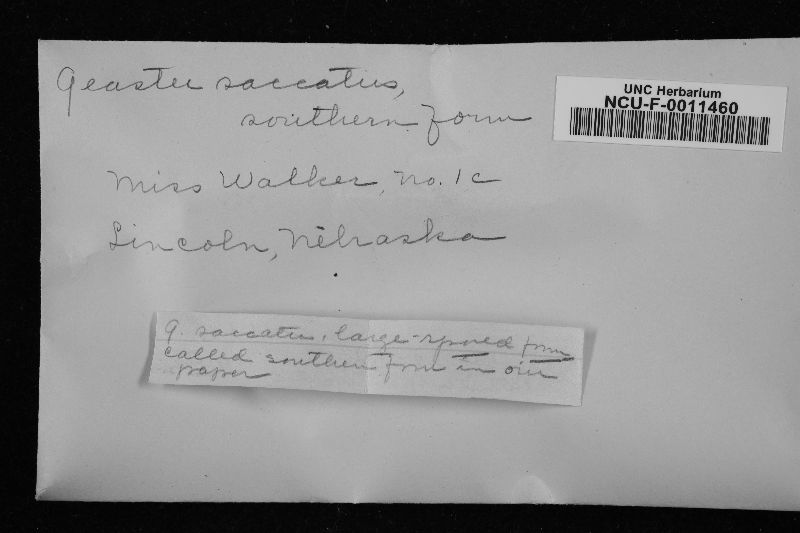 Geaster saccatus,
southern form
UNC Herbarium
NCU-F-0011460
Miss Walker, no. 1c
Lincoln, Nebraska
G. saccatus, large-spored form
called southern form in our
paper